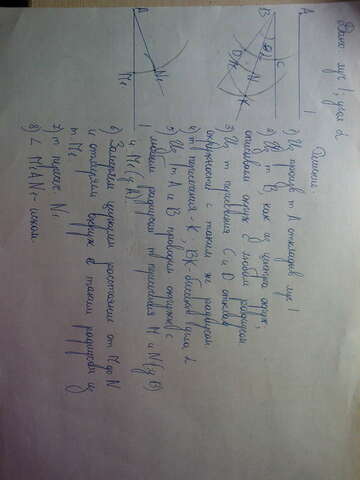 Дано: луч 1; угол 2
Решение:
1) Из произв т A отклад луч 1
2) Из т B, как из центра окруж,
описываем окруж с любым радиусом
3) Из т пересечения C и D отклад
окружности с таким же радиусом
4) т пересечения - K, BK - биссек угла 2
5) Из т A и B проводим окружн с
1 любым радиусом т пересечения M и N (у B)
и M1 (у A)
6) Замеряем циркулем расстояние от M до N
и отмеряем окруж с таким радиусом из
т M1
7) т пересеч N1
8) ∠ M1AN1 - иском
A
1
B
C
D
K
M
N
A
M1
N1